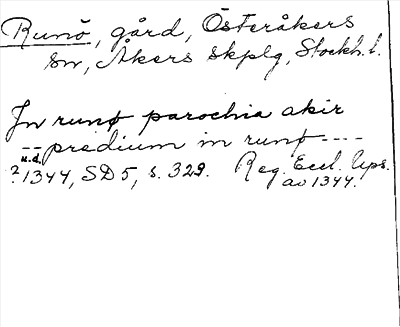 Runö, gård, Österåkers
sn, Åkers skplg, Stockh. l.
In runø parochia akir
-- predium in runø ----
u.d.
?1344, SD 5, s. 329. Reg. Eccl. Ups.
av 1344.